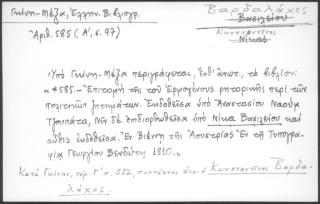 Γκίνη-Μέξα, Ἑλλην. Βιβλιογρ.
Ἀριθ. 585 (Α', σ. 97)
Βαρδαλάχος
Βασιλείου
Κωνσταντῖνος
Νίκας
Ὑπὸ Γκίνη-Μέξα περιγράφεται, ἔνθ' ἀνωτ, τὸ βιβλίον:
«*585.- Ἐπιτομὴ τῆς τοῦ Ἑρμογένους ῥητορικῆς περὶ τῶν
πολιτικῶν ζητημάτων. Ἐκδοθεῖσα ὑπὸ Ἀναστασίου Ναούμ
Τζουπάτα, Νῦν δὲ ἐπιδιορθωθεῖσα ὑπὸ Νίκα Βασιλείου καὶ
αὖθις ἐκδοθεῖσα. Ἐν Βιέννῃ τῆς Ἀουστρίας Ἐν τῇ Τυπογρα-
φίᾳ Γεωργίου Βενδώτη 1810.»
Κατὰ Γκίνην, τόμ. Γ' σ. 552, συντάκτης εἶναι ὁ Κωνσταντῖνος Βαρδα-
λάχος.